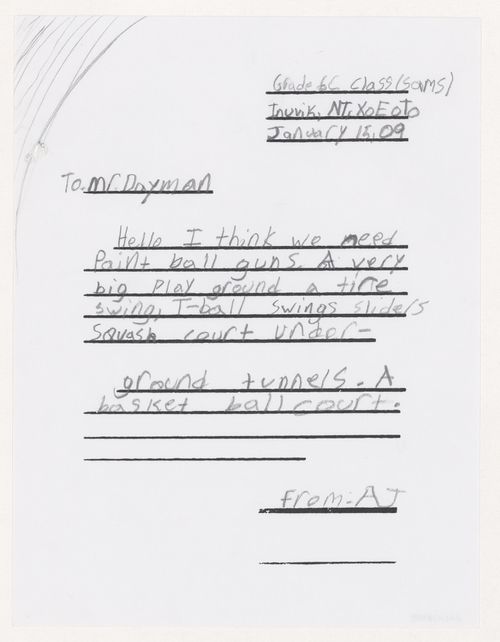 Grade 6C class (SAMS)
Inuvik, NT, X0E 0T0
January 15, 09
To: Mr. Dayman
Hello I think we need
Paint ball guns. A very
big Play ground a tire
swing, T-ball Swings sliders
Squash court under-
ground tunnels. A
basket ball court.
from: AJ